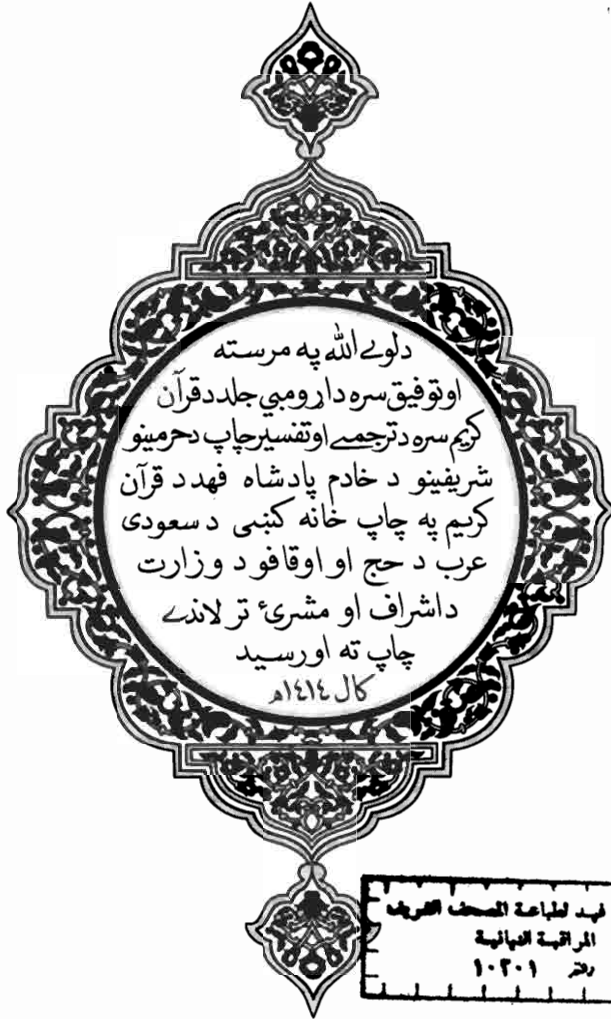 دلوے الله په مرسته
اوتوفيق سره دا ړومبي جلد د قرآن
کريم سره د ترجمے او تفسير چاپ د حرمينو
شريفينو د خادم پادشاه فهد د قرآن
کريم په چاپ خانه کښی د سعودی
عرب د حج او اوقافو د وزارت
د اشراف او مشرئ تر لاندے
چاپ ته اورسيد
کال ١٤١٤ﻫ
فهد لطباعة المصحف الشريف
المراقبة النهائية
دفتر ١٠٣٠١